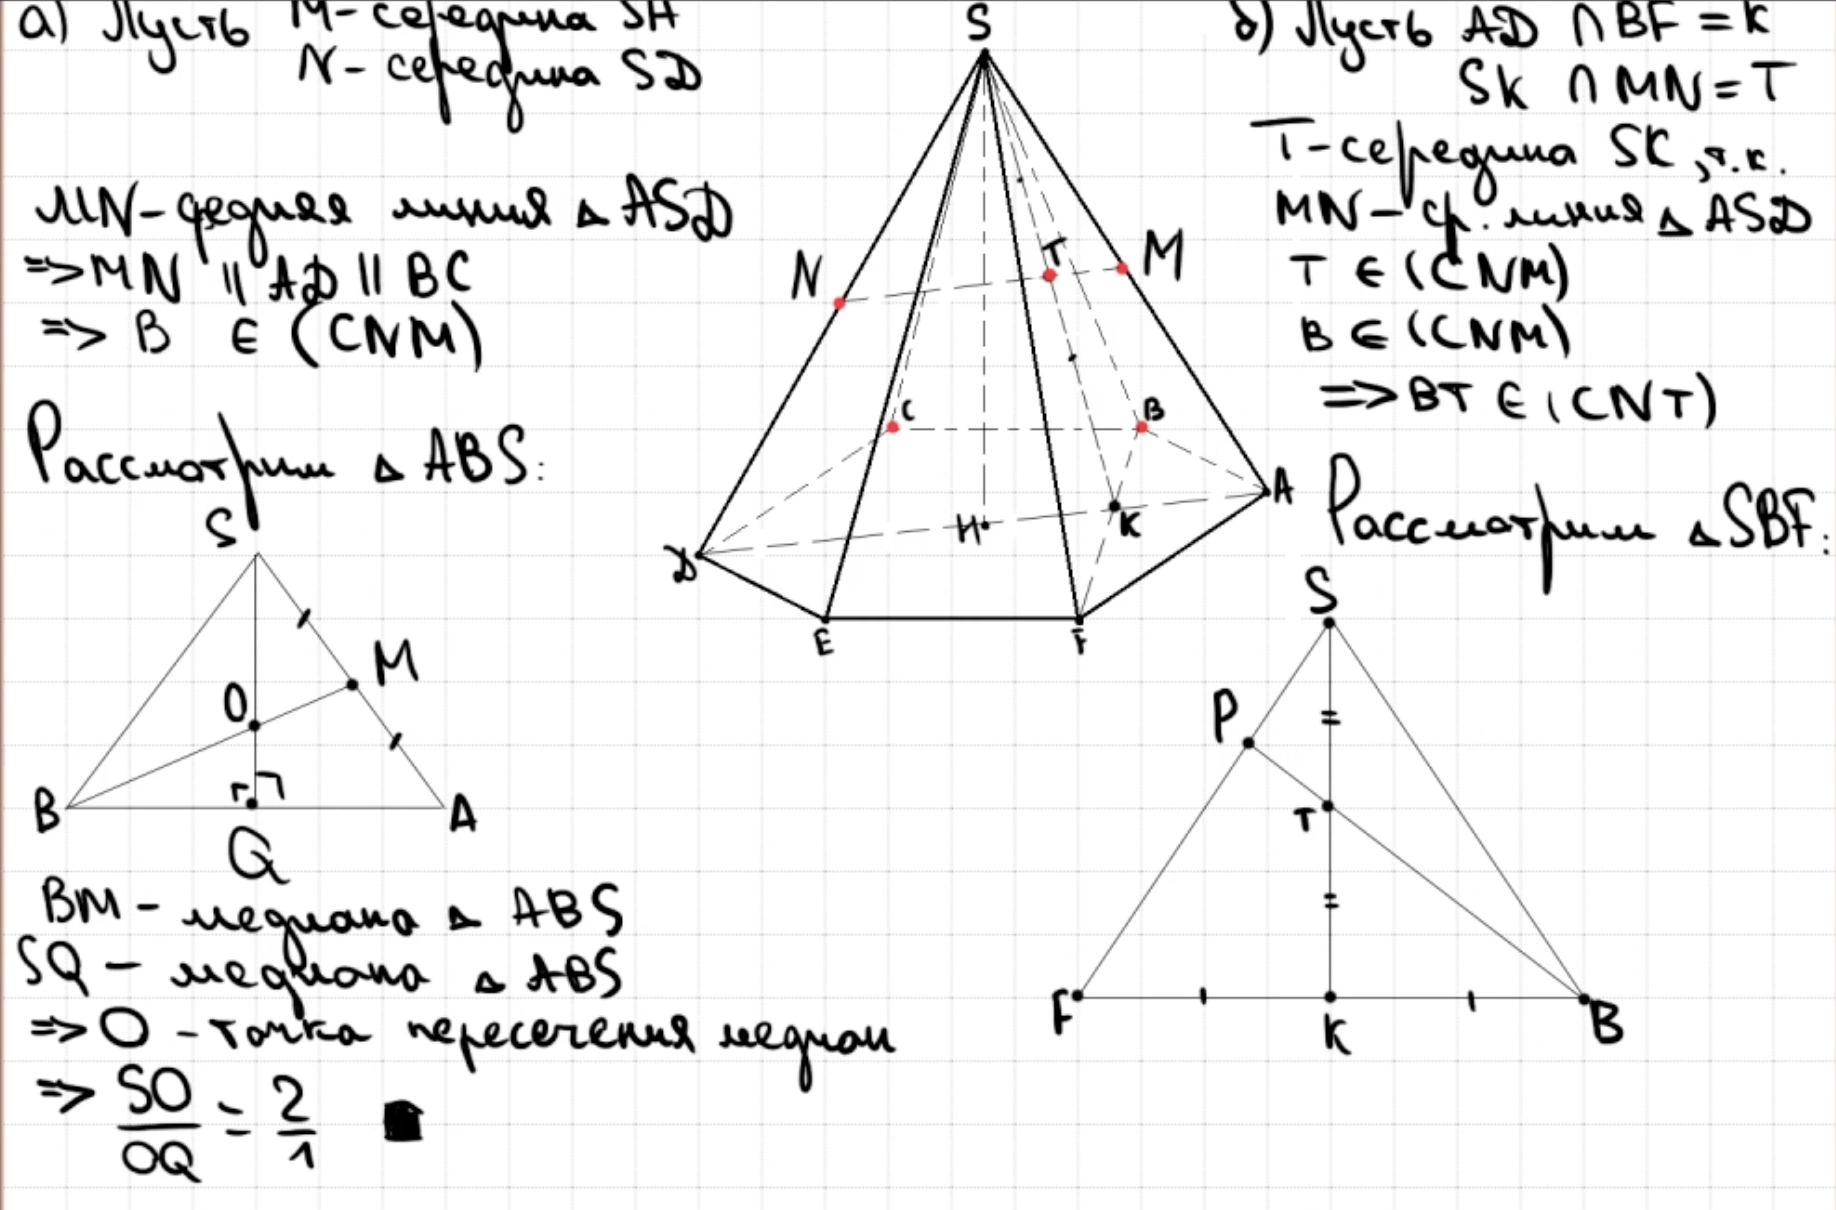 а) Пусть M - середина SA
N - середина SD
MN - средняя линия △ ASD
=> MN || AD || BC
=> B ∈ (CNM)
Рассмотрим △ ABS:
S
M
O
B
A
Q
BM - медиана △ ABS
SQ - медиана △ ABS
=> O - точка пересечения медиан
=> SO/OQ = 2/1
S
N
T
M
C
B
A
H
K
D
E
F
б) Пусть AD ∩ BF = K
SK ∩ MN = T
T - середина SK, т.к.
MN - ср. линия △ ASD
T ∈ (CNM)
B ∈ (CNM)
=> BT ∈ (CNT)
Рассмотрим △ SBF:
S
P
T
F
K
B